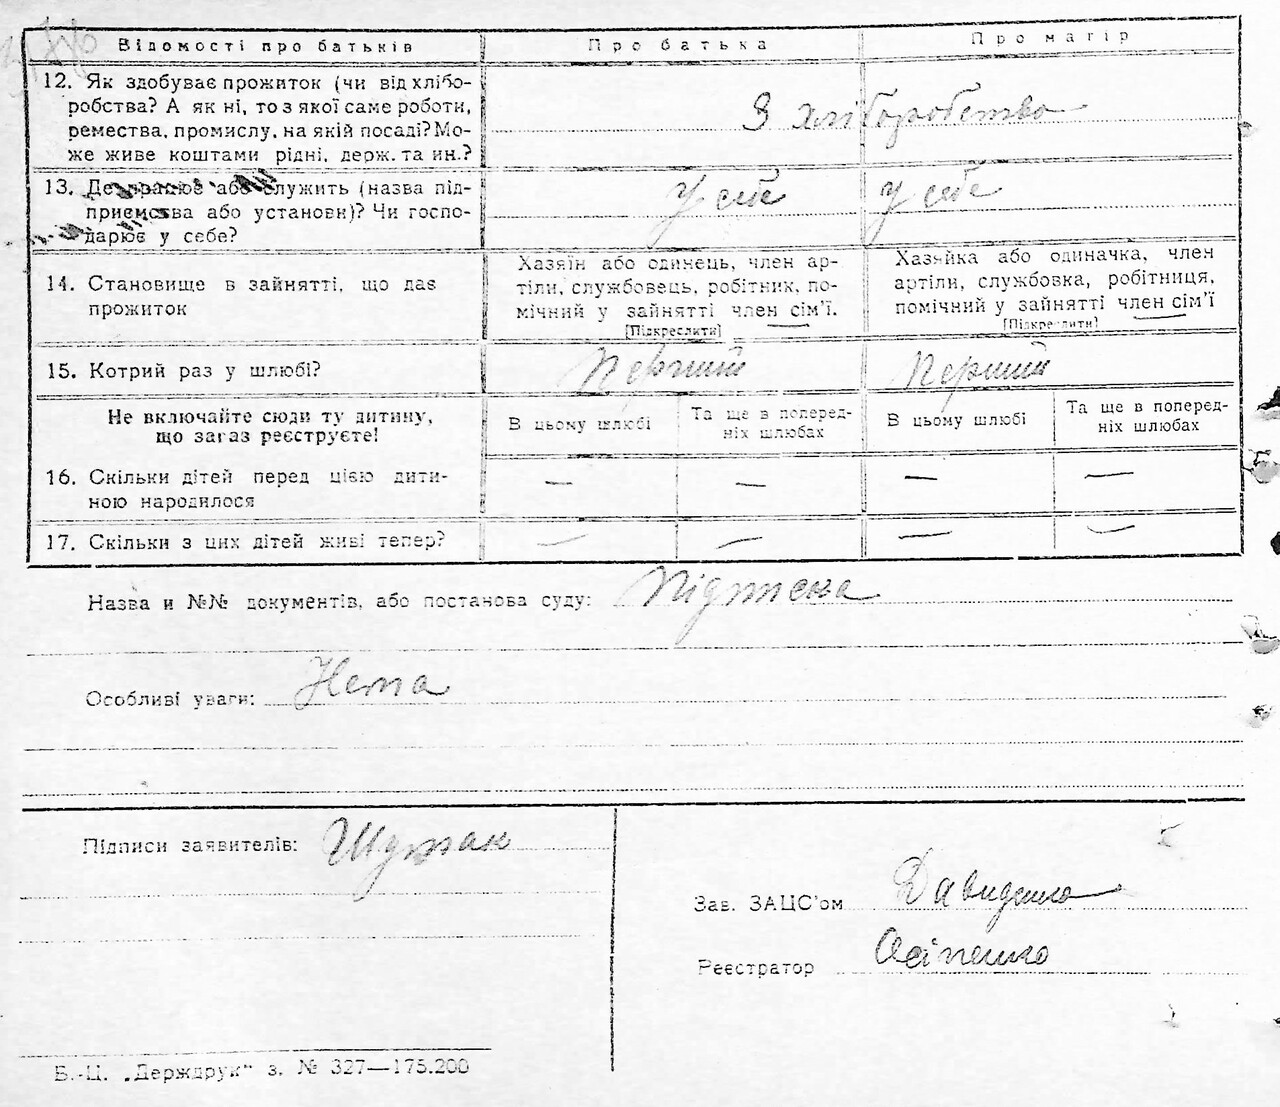 Відомості про батьків Про батька Про матір
12. Як здобуває прожиток (чи від хлібо-
робства? А як ні, то з якої саме роботи,
ремества, промислу, на якій посаді? Мо-
же живе коштами рідні, держ. та ин.?
З хліборобства
13. Де працює або служить (назва під-
приємства або установи)? Чи госпо-
дарює у себе?
У себе У себе
14. Становище в зайнятті, що дає
прожиток
Хазяїн або одинець, член ар-
тіли, службовець, робітник, по-
мічний у зайнятті член сім'ї.
[Підкреслити]
Хазяйка або одиначка, член
артіли, службовка, робітниця,
помічний у зайнятті член сім'ї
[Підкреслити]
15. Котрий раз у шлюбі? Перший Перший
Не включайте сюди ту дитину,
що зараз реєструєте!
В цьому шлюбі
Та ще в поперед-
ніх шлюбах
В цьому шлюбі
Та ще в поперед-
ніх шлюбах
16. Скільки дітей перед цією дити-
ною народилося
— — — —
17. Скільки з цих дітей живі тепер? — — — —
Назва и №№ документів, або постанова суду: Підписка
Особливі уваги: Нема
Підписи заявителів:
Зав. ЗАЦС'ом Давиденко
Реєстратор Осіпенко
Б.-Ц. „Держдрук" з. № 327—175.200